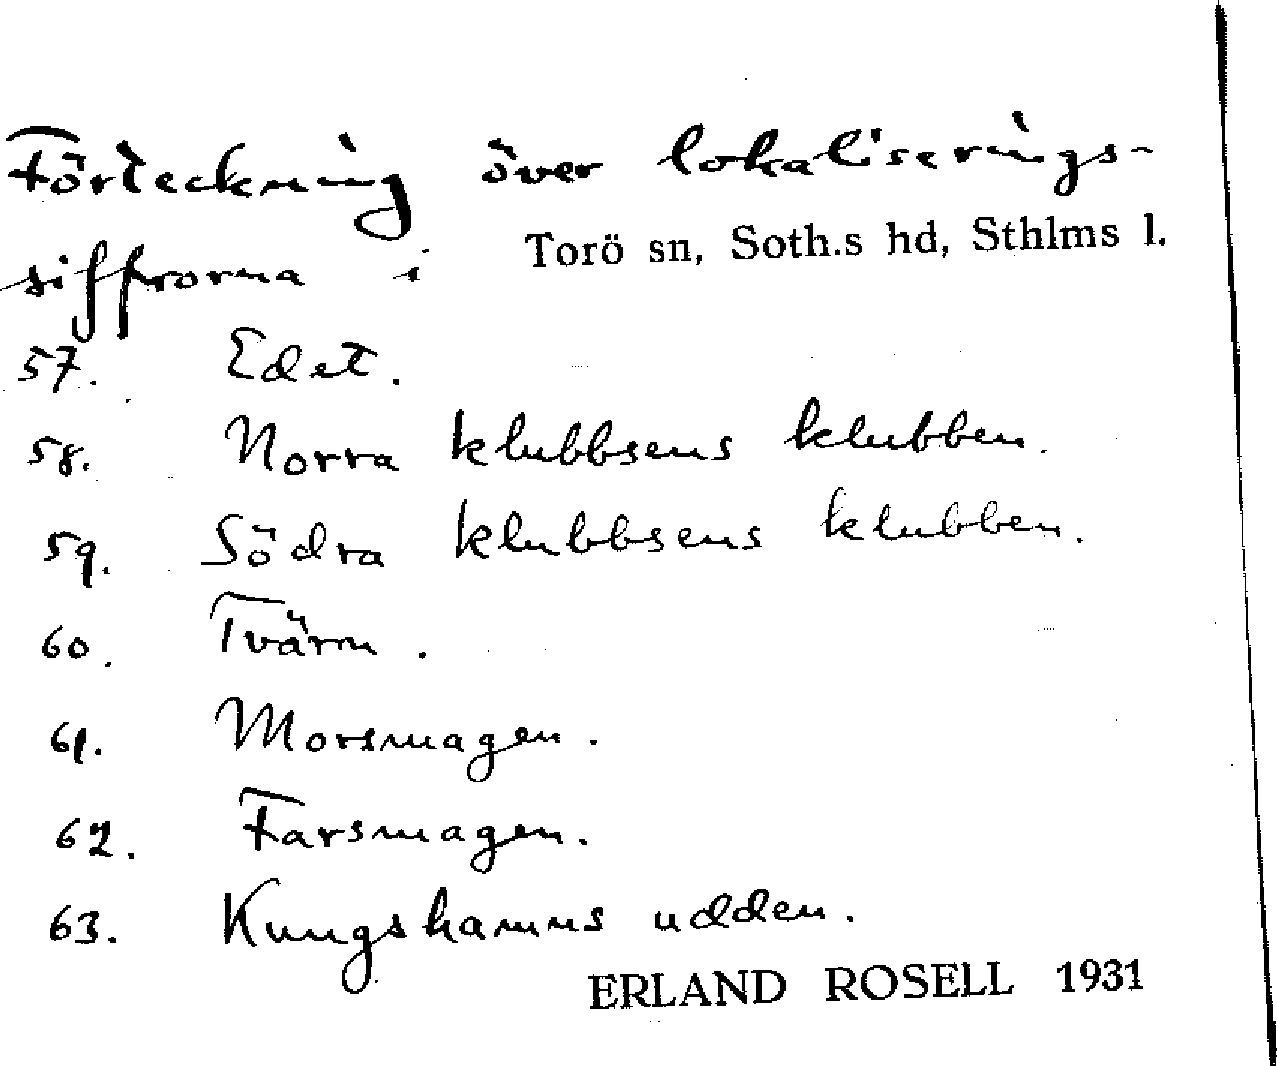 Förteckning över lokaliserings-
siffrorna i Torö sn, Soth.s hd, Sthlms l.
57. Edet.
58. Norra klubbsens klubben.
59. Södra klubbsens klubben.
60. Tvärn.
61. Morsmagen.
62. Farsmagen.
63. Kungshamns udden.
ERLAND ROSELL 1931